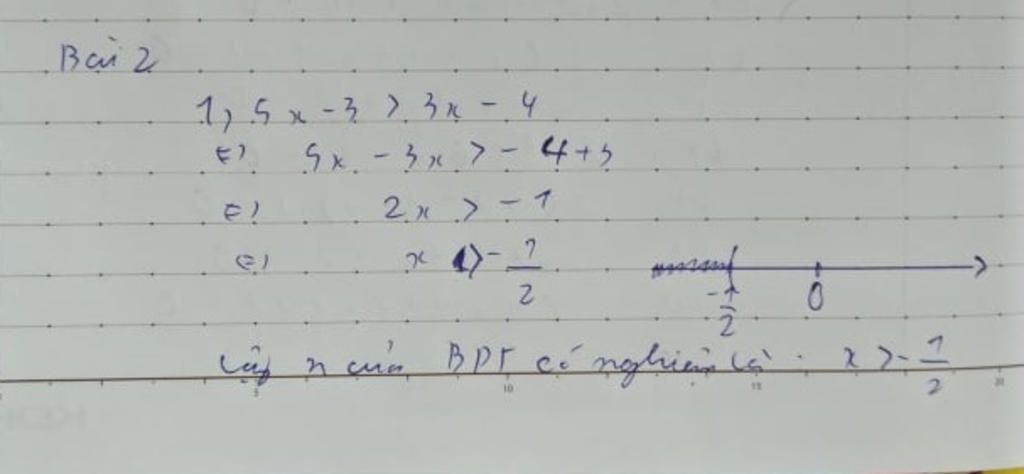 Bài 2
1) 5x - 3 > 3x - 4
⇔ 5x - 3x > -4 + 3
⇔ 2x > -1
⇔ x > -1/2
-1/2 0
Vậy n của BPT có nghiệm là : x > -1/2
5 10 15 20